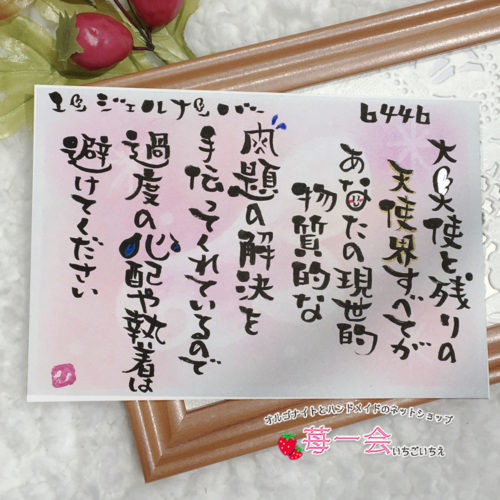 エンジェルナンバー
6446
大天使と残りの
天使界すべてが
あなたの現世的
物質的な
問題の解決を
手伝ってくれているので
過度の心配や執着は
避けてください
オルゴナイトとハンドメイドのネットショップ
苺一会 いちごいちえ